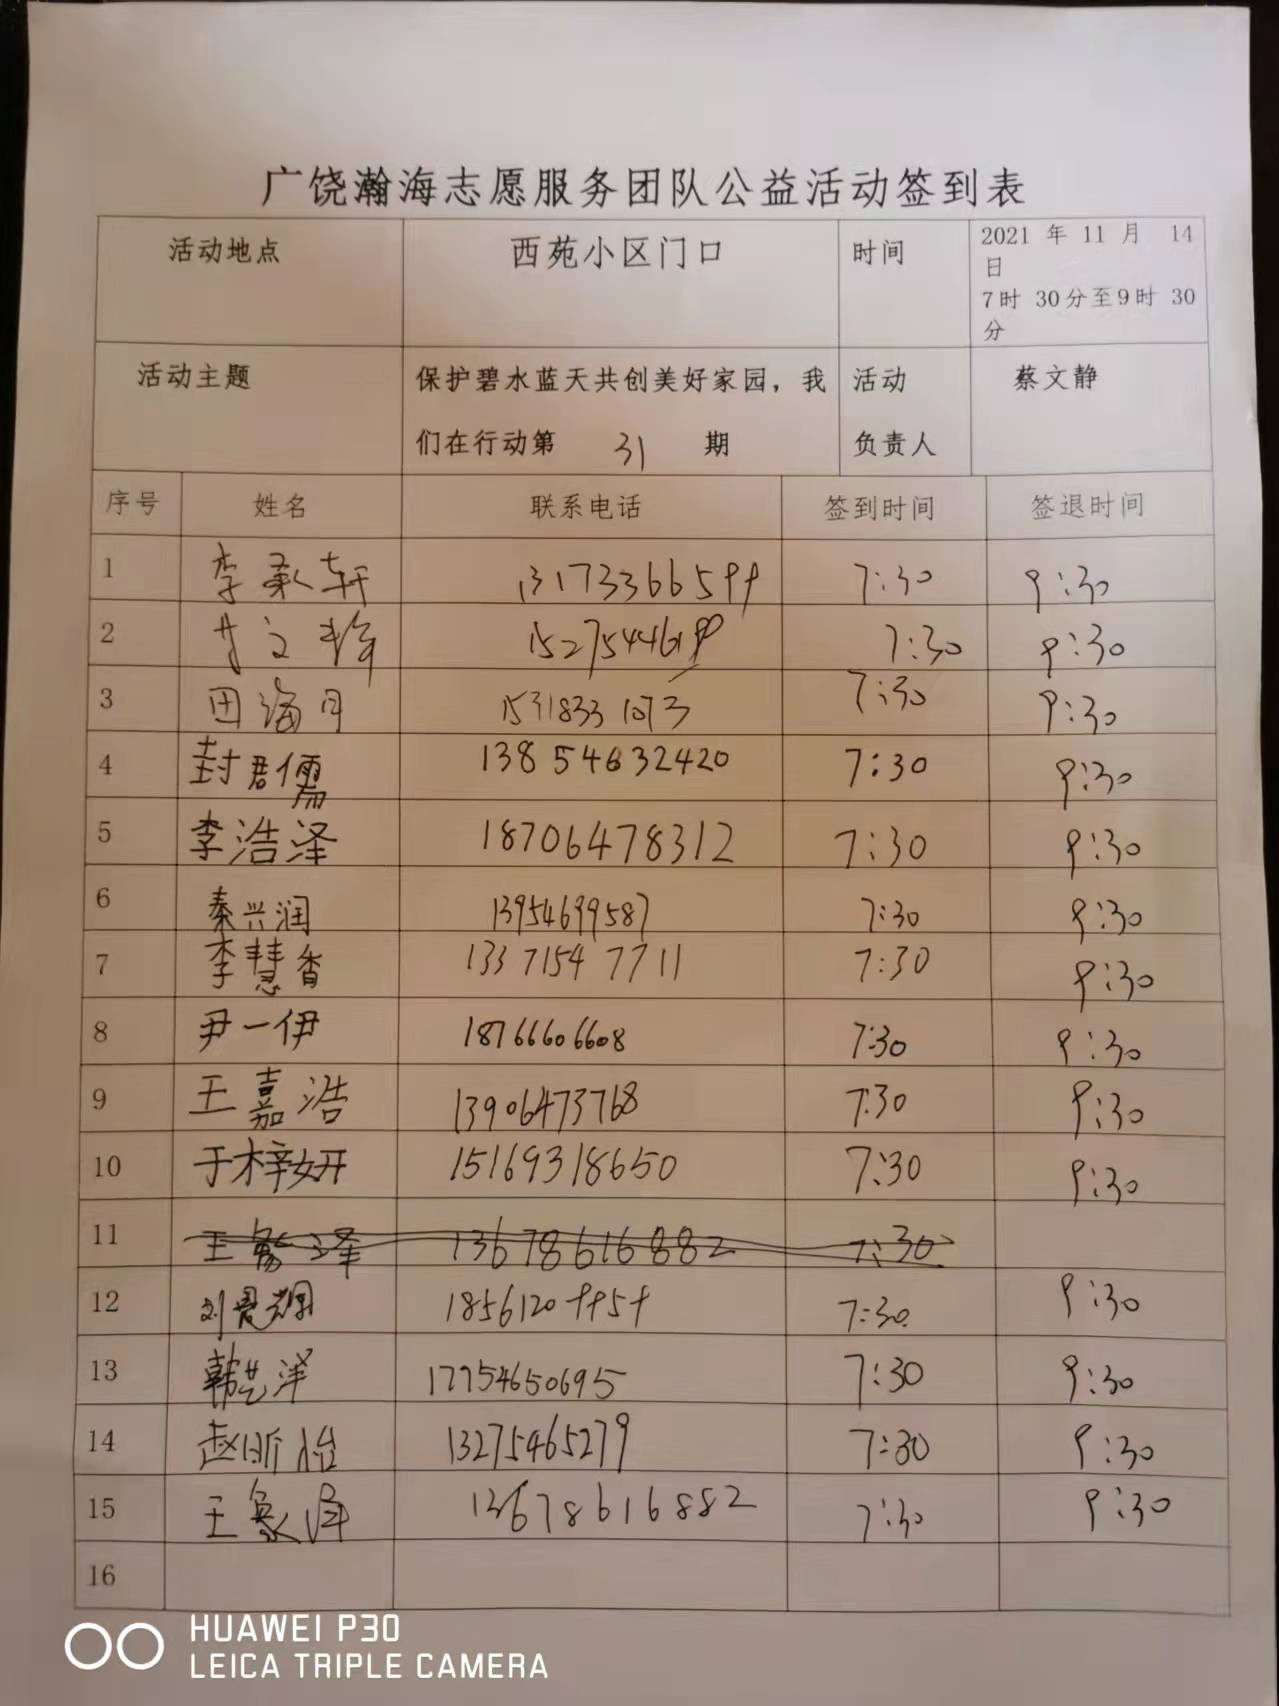 广饶瀚海志愿服务团队公益活动签到表
活动地点 西苑小区门口 时间 2021 年 11 月 14
日
7时 30分至9时 30
分
活动主题 保护碧水蓝天共创美好家园，我 活动 蔡文静
们在行动第 31 期 负责人
序号 姓名 联系电话 签到时间 签退时间
1 李承轩 13173366599 7:30 9:30
2 文 7:30 9:30
3 田海月 15318331073 7:30 9:30
4 封君儒 13854632420 7:30 9:30
5 李浩泽 18706478312 7:30 9:30
6 秦兴润 13954699587 7:30 9:30
7 李慧香 13371547711 7:30 9:30
8 尹一伊 18766606608 7:30 9:30
9 王嘉浩 13906473768 7:30 9:30
10 于梓妍 15169318650 7:30 9:30
11 王 泽 13678616882 7:30
12 刘 18561209959 7:30 9:30
13 韩艺洋 17754650695 7:30 9:30
14 赵昕怡 13275465279 7:30 9:30
15 王 泽 13678616882 7:30 9:30
16
HUAWEI P30
LEICA TRIPLE CAMERA